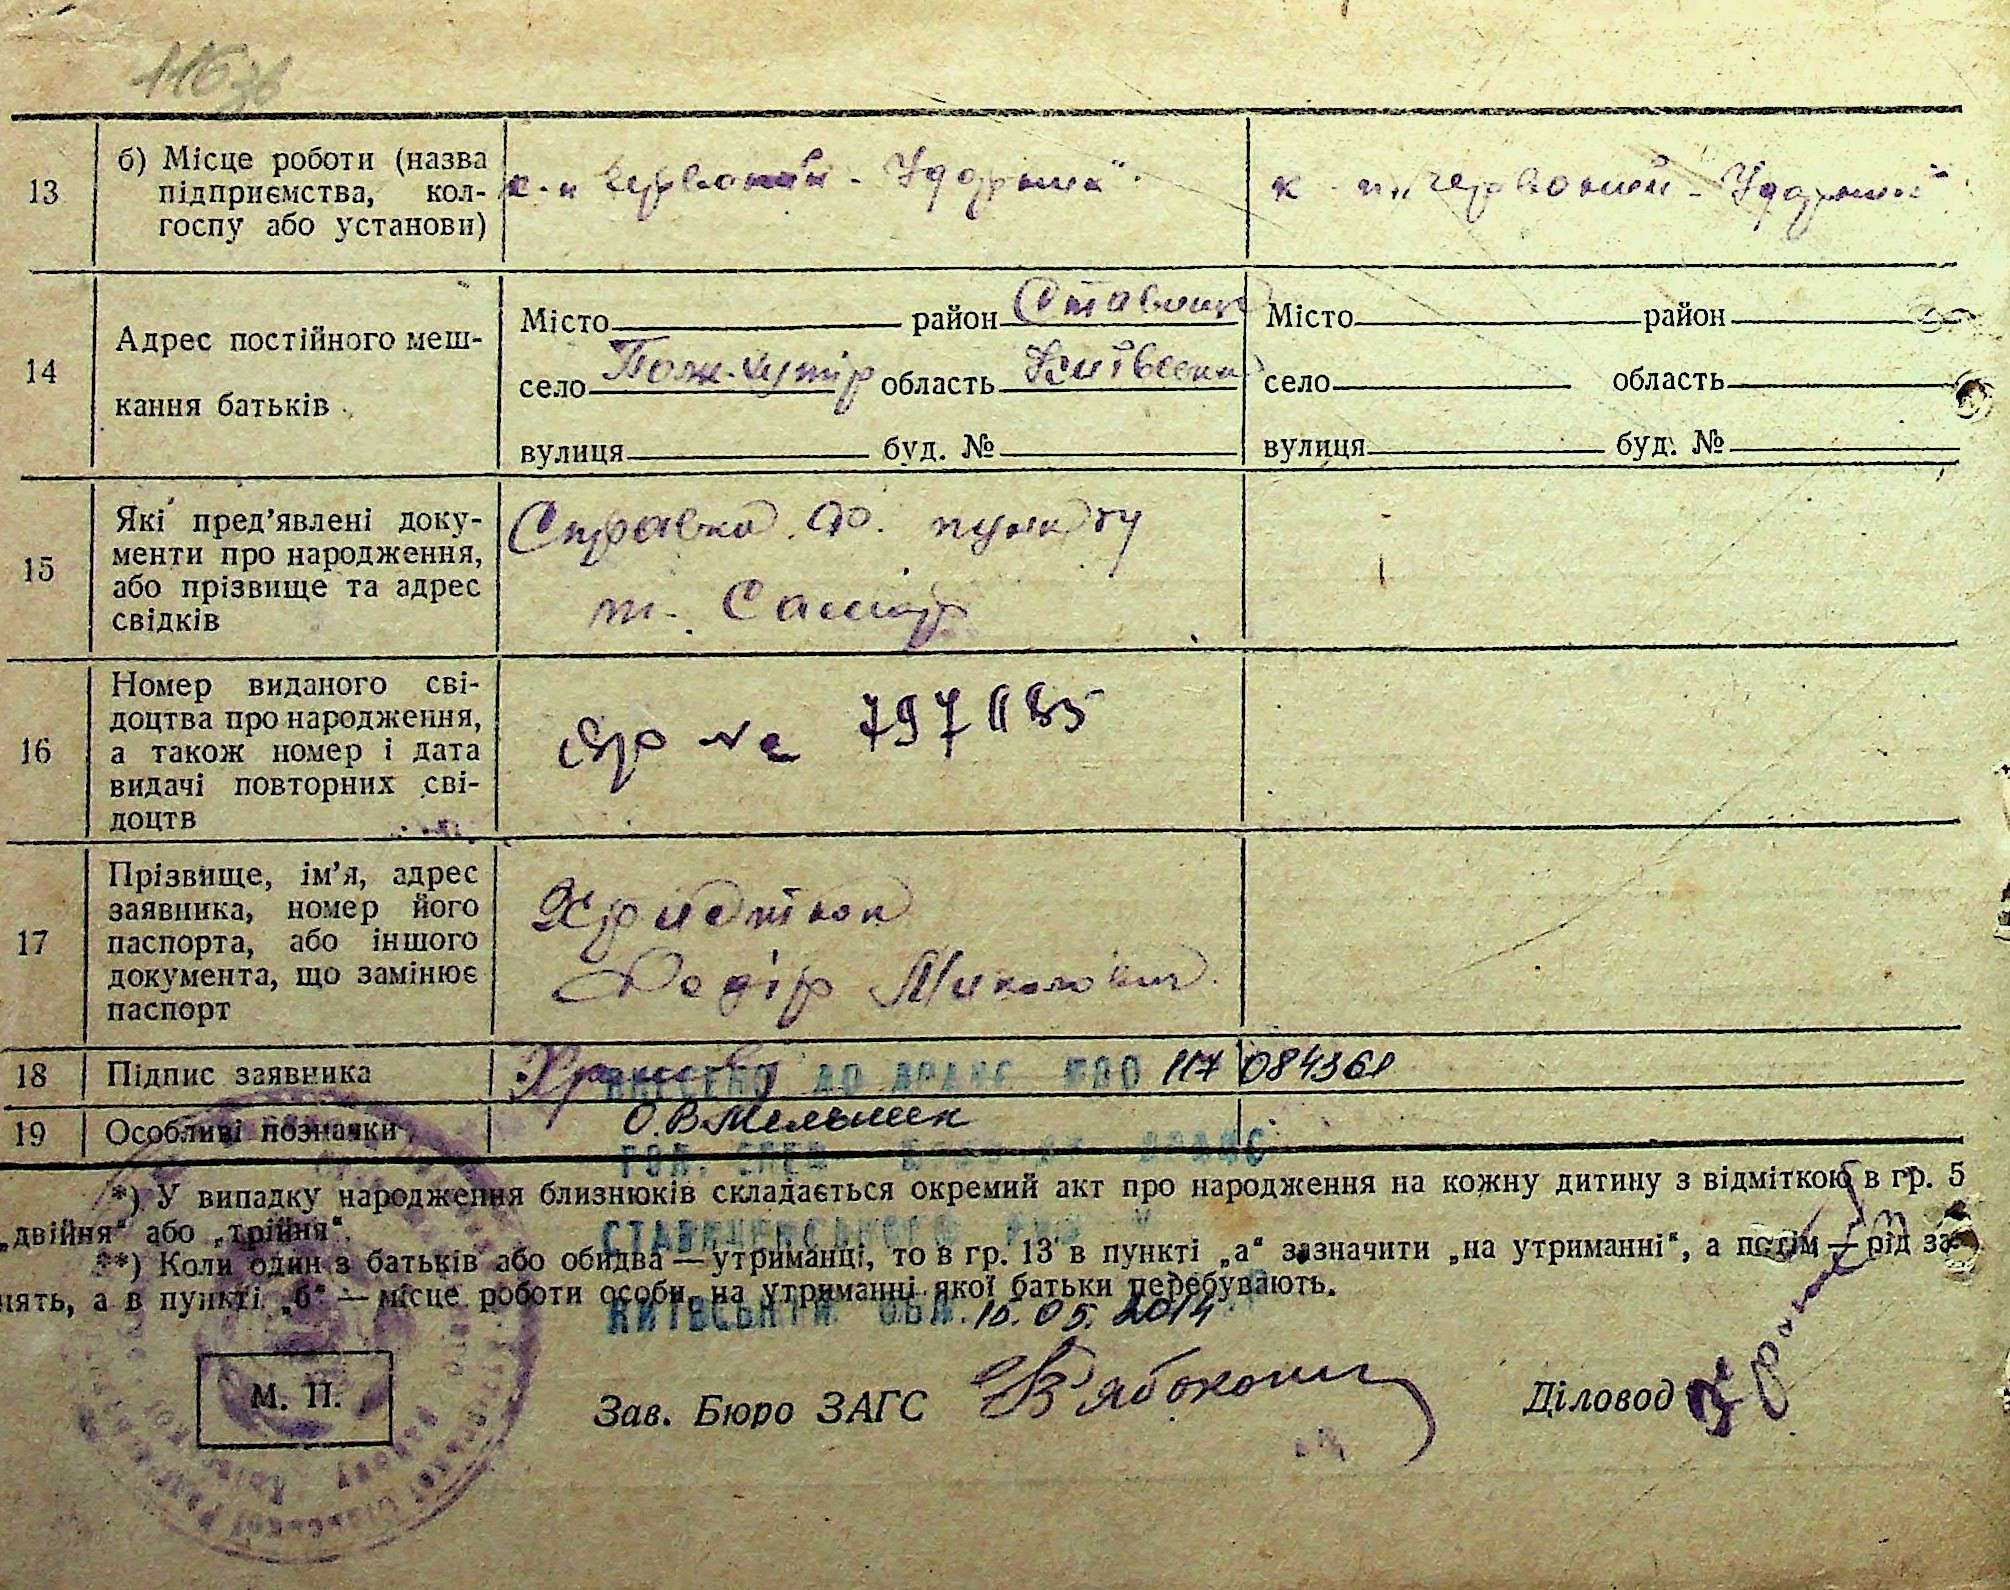 116 зв
13
б) Місце роботи (назва
підприємства, кол-
госпу або установи)
к-п Червоний - Ударник"
к-п „Червоний - Ударник"
14
Адрес постійного меш-
кання батьків
Місто район Ставищ
село область Київська
вулиця буд. №
Місто район
село область
вулиця буд. №
15
Які пред'явлені доку-
менти про народження,
або прізвище та адрес
свідків
Справка пункту
16
Номер виданого сві-
доцтва про народження,
а також номер і дата
видачі повторних сві-
доцтв
797185
17
Прізвище, ім'я, адрес
заявника, номер його
паспорта, або іншого
документа, що замінює
паспорт
Федір Миколович
18
Підпис заявника
ВНЕСЕНО ДО ДРАЦС 117 084361
19
Особливі позначки
О.В. Мельник
ГОЛ. СПЕЦ ДРАЦС
*) У випадку народження близнюків складається окремий акт про народження на кожну дитину з відміткою в гр. 5
„двійня" або „трійня".
СТАВИЩЕНСЬКОГО
**) Коли один з батьків або обидва — утриманці, то в гр. 13 в пункті „а" зазначити „на утриманні", а потім — рід за-
нять, а в пункті „б" — місце роботи особи, на утриманні якої батьки перебувають.
КИЇВСЬКІЙ ОБЛ. 15.05.2014
М. П.
Зав. Бюро ЗАГС
Діловод